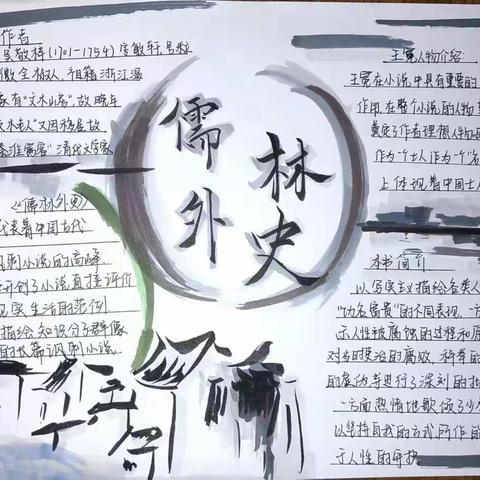 作者
吴敬梓(1701-1754)字敏轩,号粒
徽全椒人,祖籍浙江温
家有"文木山房",故晚年
文木老人"又因移居故
秦淮寓客"清代文学家
《儒林外史》
代表着中国古代
讽刺小说的高峰
开创了小说直接评价
现实生活的范例
描绘知识分子群像
的长篇讽刺小说.
儒林
外史
王冕人物介绍:
王冕在小说中具有重要的
作用在整个小说的人物
奠定了作者理想人物
作为一个士人作为一个
上体现着中国士人
本书简介
以写实主义描绘各类人
"功名富贵"的不同表现,一方
示人性被腐蚀的过程和原
对当时吏治的腐败、科举的
的虚伪等进行了深刻的批
一方面热情地歌颂了少
以坚持自我的方式所作的
于人性的守护